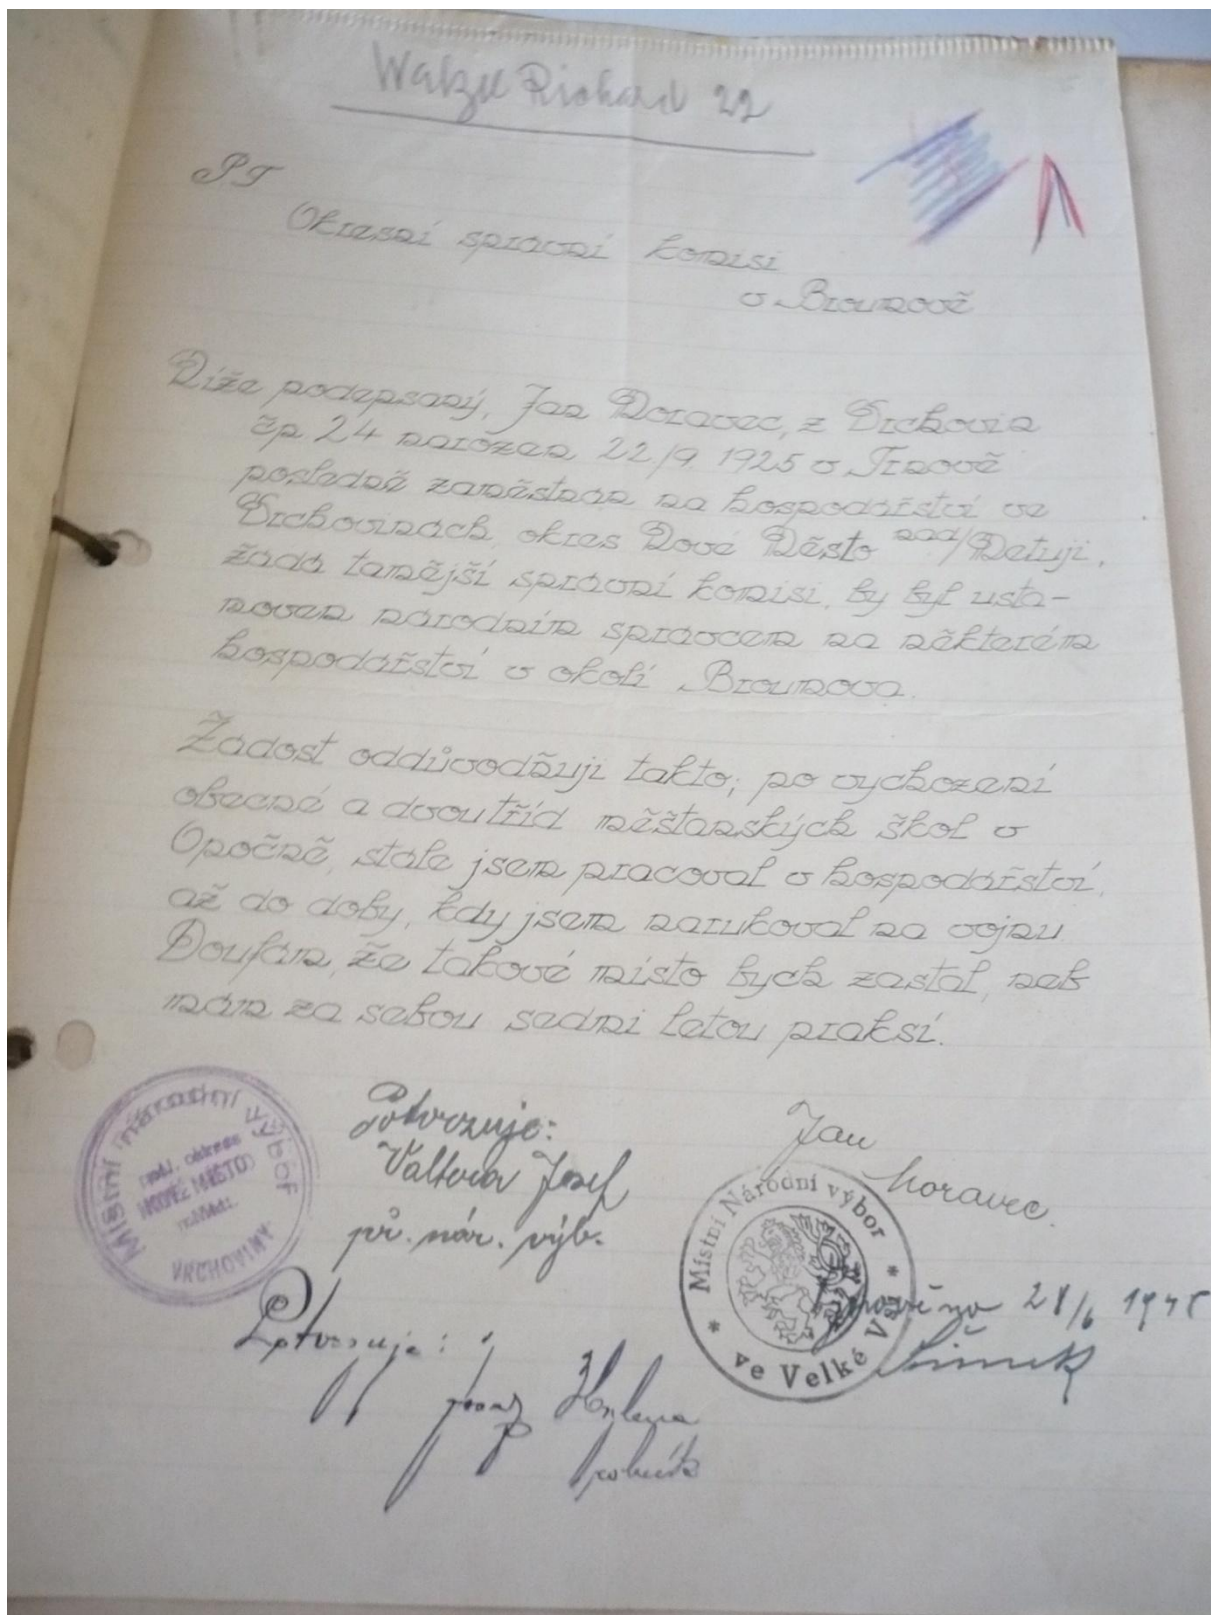 Walzel Richard 22
PT
Okresní správní komisi
v Broumově
Níže podepsaný, Jan Moravec, z Vrchovin
čp 24 narozen 22./9. 1925 v Trnově
posledně zaměstnán na hospodářství ve
Vrchovinách, okres Nové Město nad/Metují,
žádá tamější správní komisi, by byl usta-
noven národním správcem na některém
hospodářství v okolí Broumova.
Žádost oddůvodňuji takto; po vychození
obecné a dvou tříd měšťanských škol v
Opočně, stále jsem pracoval v hospodářství,
až do doby, kdy jsem narukoval na vojnu.
Doufám, že takové místo bych zastal, neb
mám za sebou sedmi letou praksí.
Potvrzuje:
Jan
Moravec.
Josef
př. nár. výb.
Místní národní výbor
pol. okres
NOVÉ MĚSTO
n./Met.
VRCHOVINY
Místní Národní výbor
ve Velké
28/6 1945
Šimek
Potvrzuje: